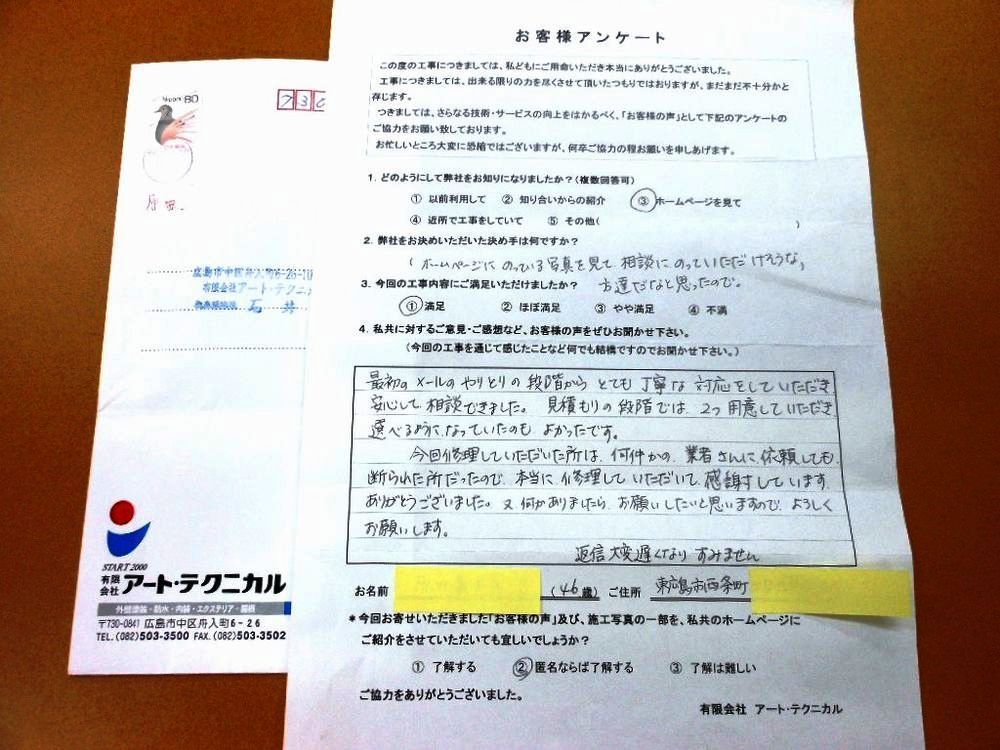 お客様アンケート
この度の工事につきましては、私どもにご用命いただき本当にありがとうございました。
工事につきましては、出来る限りの力を尽くさせて頂いたつもりではおりますが、まだまだ不十分かと
存じます。
つきましては、さらなる技術・サービスの向上をはかるべく、「お客様の声」として下記のアンケートの
ご協力をお願い致しております。
お忙しいところ大変に恐縮ではございますが、何卒ご協力の程お願いを申しあげます。
1. どのようにして弊社をお知りになりましたか？（複数回答可）
① 以前利用して ② 知り合いからの紹介 ③ ホームページを見て
④ 近所で工事をしていて ⑤ その他( )
2. 弊社をお決めいただいた決め手は何ですか？
( ホームページにのっている写真を見て 相談にのっていただけそうな,
方達だなと思ったので。
3. 今回の工事内容にご満足いただけましたか？
① 満足 ② ほぼ満足 ③ やや満足 ④ 不満
4. 私共に対するご意見・ご感想など、お客様の声をぜひお聞かせ下さい。
（今回の工事を通じて感じたことなど何でも結構ですのでお聞かせ下さい。）
最初のメールのやりとりの段階から とても丁寧な対応をしていただき
安心して相談できました。 見積もりの段階では、2つ用意していただき
選べるようになっていたのも よかったです。
今回修理していただいた所は、何件かの業者さんに依頼しても
断られた所だったので、本当に修理していただいて、感謝しています。
ありがとうございました。又何かありましたら お願いしたいと思いますので、よろしく
お願いします。
返信大変遅くなり すみません
お名前 (46歳) ご住所 東広島市西条町
＊今回お寄せいただきました「お客様の声」及び、施工写真の一部を、私共のホームページに
ご紹介をさせていただいても宜しいでしょうか？
① 了解する ② 匿名ならば了解する ③ 了解は難しい
ご協力をありがとうございました。
有限会社 アート・テクニカル
NIPPON 80
730
広島市中区舟入町6-26-10
有限会社アート・テクニカ
石井
START 2000
有限会社 アート・テクニカル
外壁塗装・防水・内装・エクステリア・屋根
〒730-0841 広島市中区舟入町6-26
TEL.(082)503-3500 FAX.(082)503-3502